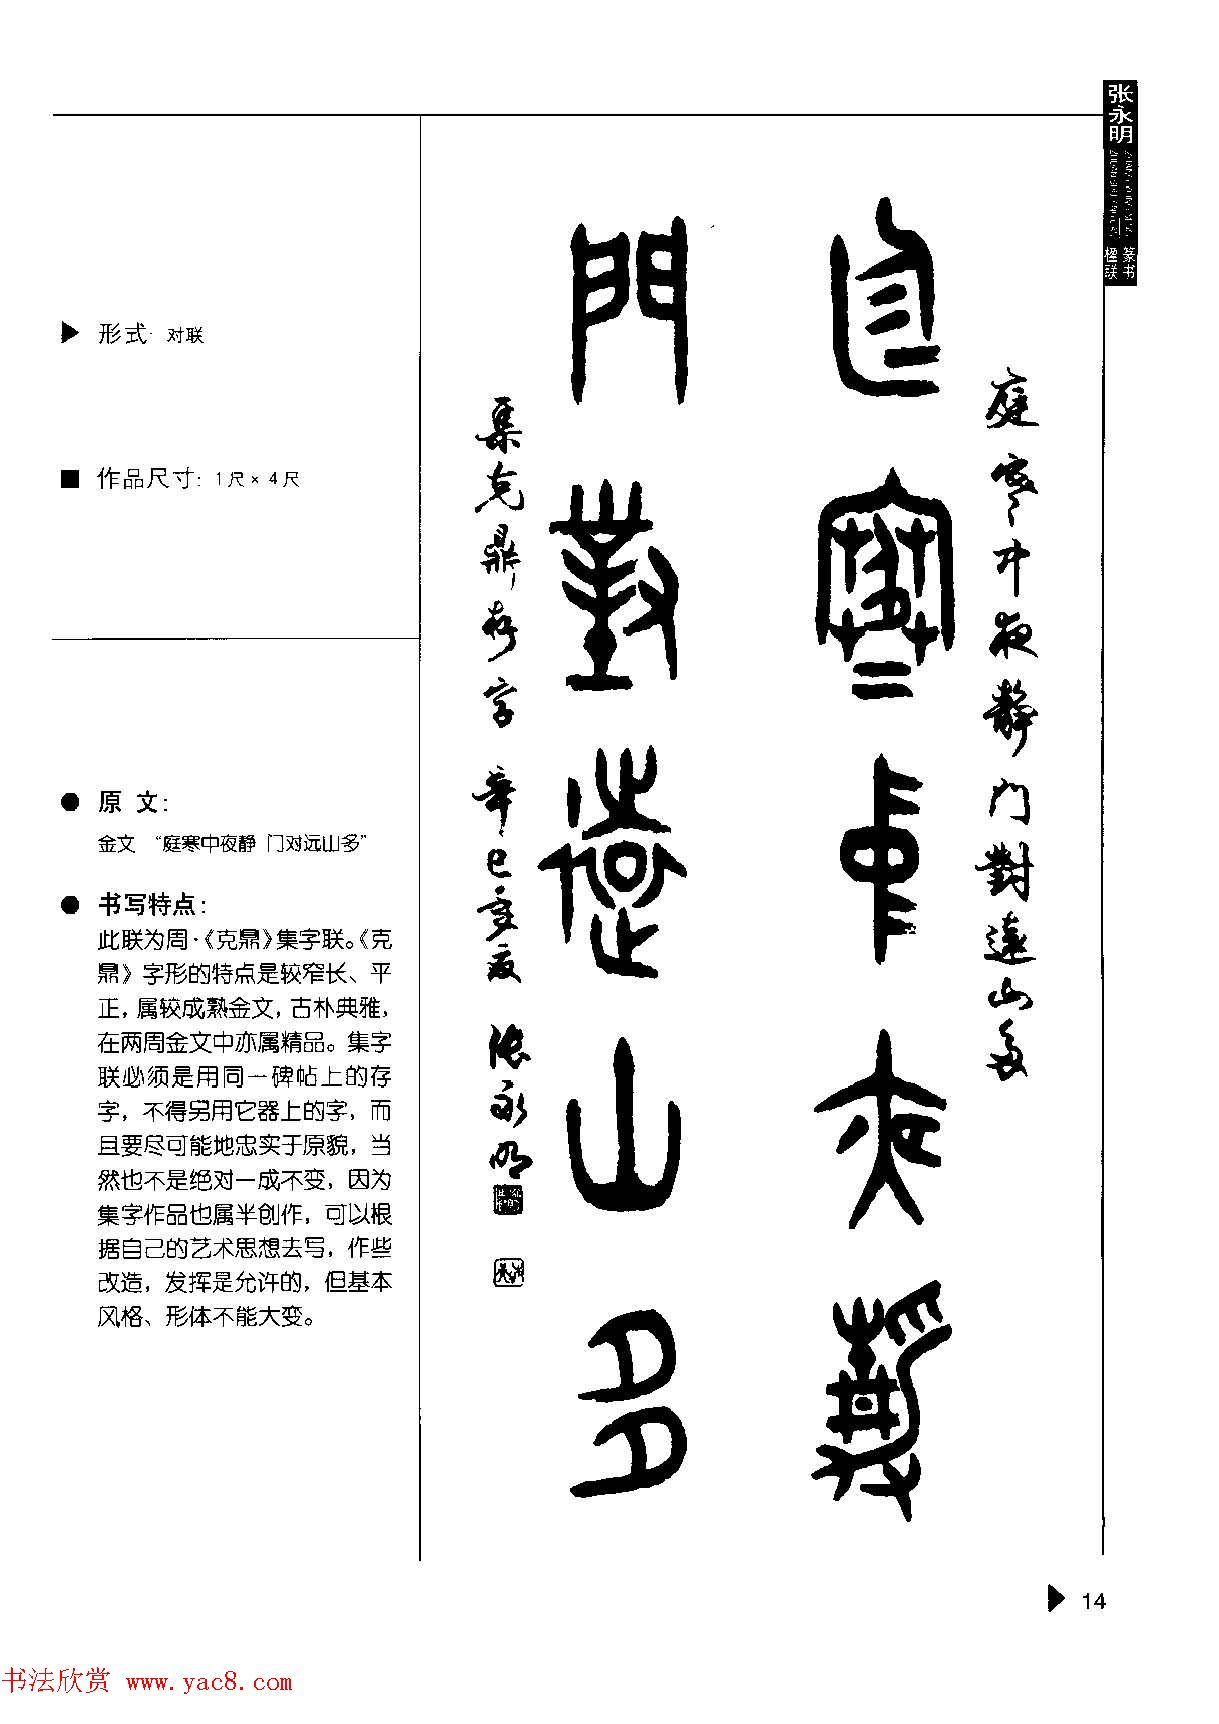 张永明
篆书
楹联
▶ 形式· 对联
■ 作品尺寸: 1尺× 4尺
● 原 文:
金文 “庭寒中夜静 门对远山多”
● 书写特点:
此联为周·《克鼎》集字联。《克
鼎》字形的特点是较窄长、平
正，属较成熟金文，古朴典雅，
在两周金文中亦属精品。集字
联必须是用同一碑帖上的存
字，不得另用它器上的字，而
且要尽可能地忠实于原貌，当
然也不是绝对一成不变，因为
集字作品也属半创作，可以根
据自己的艺术思想去写，作些
改造，发挥是允许的，但基本
风格、形体不能大变。
庭寒中夜静门對遠山多
庭寒中夜静
門對遠山多
集克鼎存字 辛巳年夏 张永明
▶ 14
书法欣赏 www.yac8.com